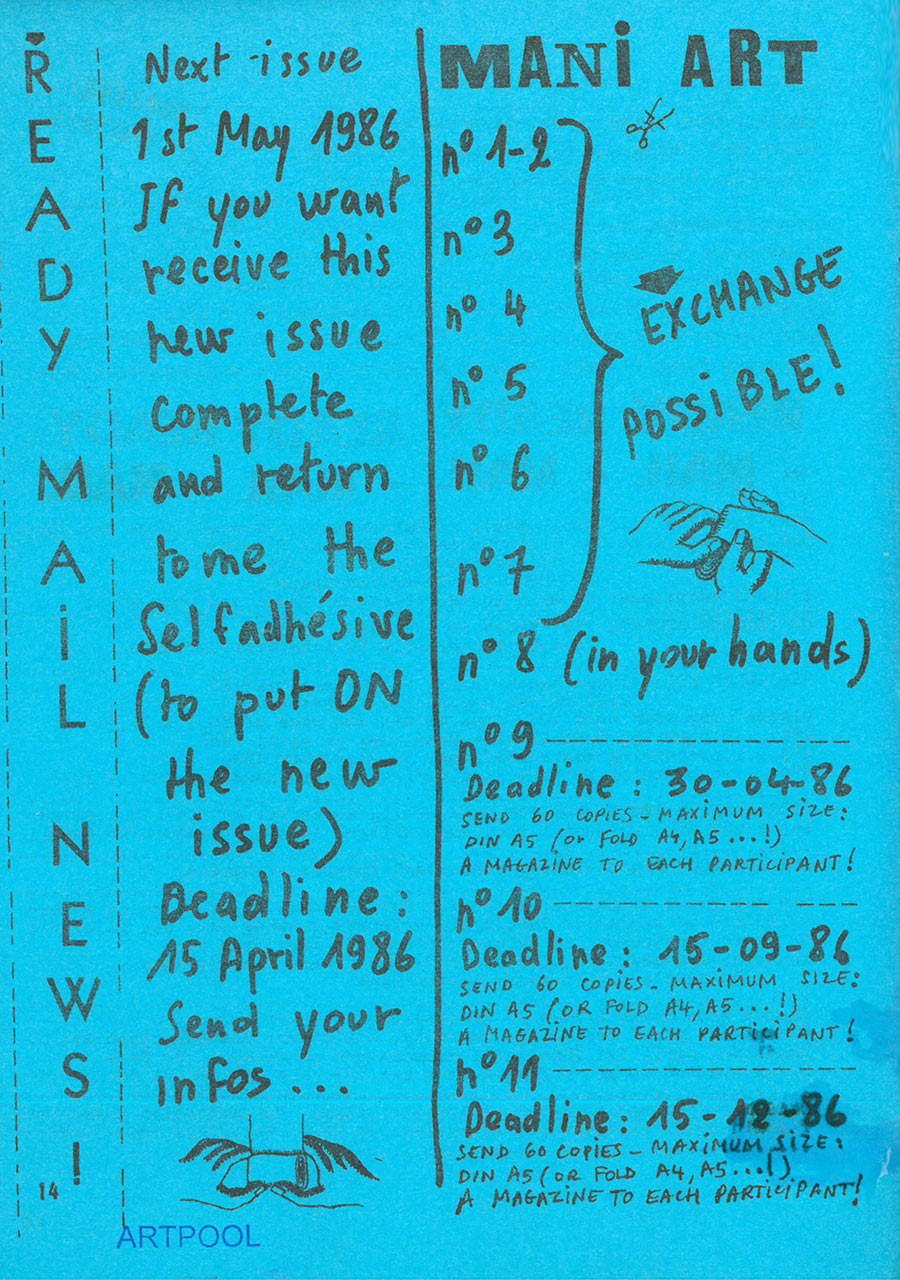 READY MAIL NEWS!
Next issue
1st May 1986
If you want
receive this
new issue
complete
and return
to me the
Selfadhésive
(to put ON
the new
issue)
Deadline:
15 April 1986
Send your
infos...
14
ARTPOOL
MANi ART
n° 1-2
n° 3
n° 4
n° 5
n° 6
n° 7
EXCHANGE
POSSiBLE!
n° 8 (in your hands)
n° 9
Deadline: 30-04-86
SEND 60 COPIES - MAXIMUM SIZE:
DIN A5 (OR FOLD A4, A5...!)
A MAGAZINE TO EACH PARTICIPANT!
n° 10
Deadline: 15-09-86
SEND 60 COPIES - MAXIMUM SIZE:
DIN A5 (OR FOLD A4, A5...!)
A MAGAZINE TO EACH PARTICIPANT!
n° 11
Deadline: 15-12-86
SEND 60 COPIES - MAXIMUM SIZE:
DIN A5 (OR FOLD A4, A5...!)
A MAGAZINE TO EACH PARTICIPANT!